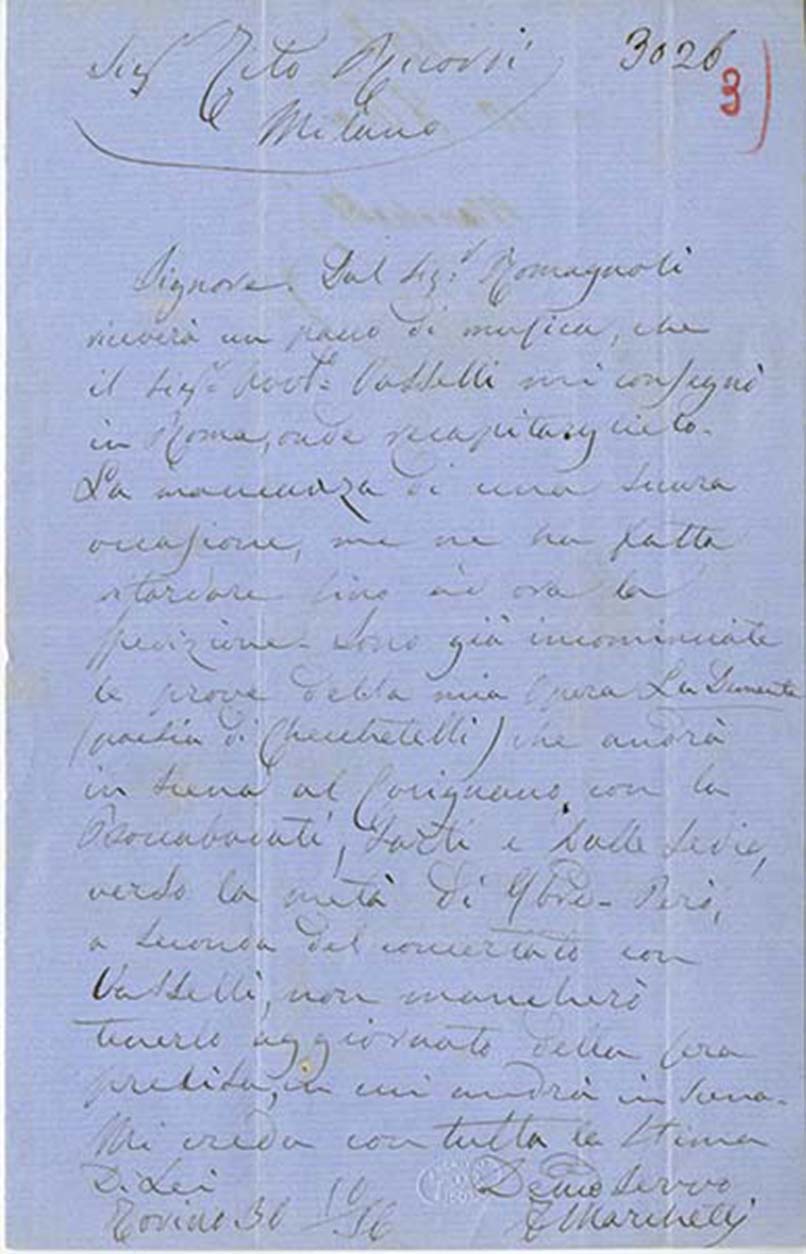 Sigr Tito Ricordi
Milano
3026
3
Signore. Dal Sigr Romagnoli
riceverà un pacco di musica, che
il Sigr Avvto Vasselli mi consegnò
in Roma, onde recapitarglielo.
La mancanza di una sicura
occasione, me ne ha fatta
ritardare fino ad ora la
spedizione. Sono già incominciate
le prove della mia Opera La Demente
(poesia di Checchetelli) che andrà
in scena al Carignano, con la
Boccabadati, Sarti e Delle Sedie,
verso la metà di 9bre. Però,
a seconda del concertato con
Vasselli, non mancherò
tenerlo aggiornato della sera
precisa, in cui andrà in scena.
Mi creda con tutta la stima
Di Lei
Demo Servo
Torino 30 10/56
F Marchetti